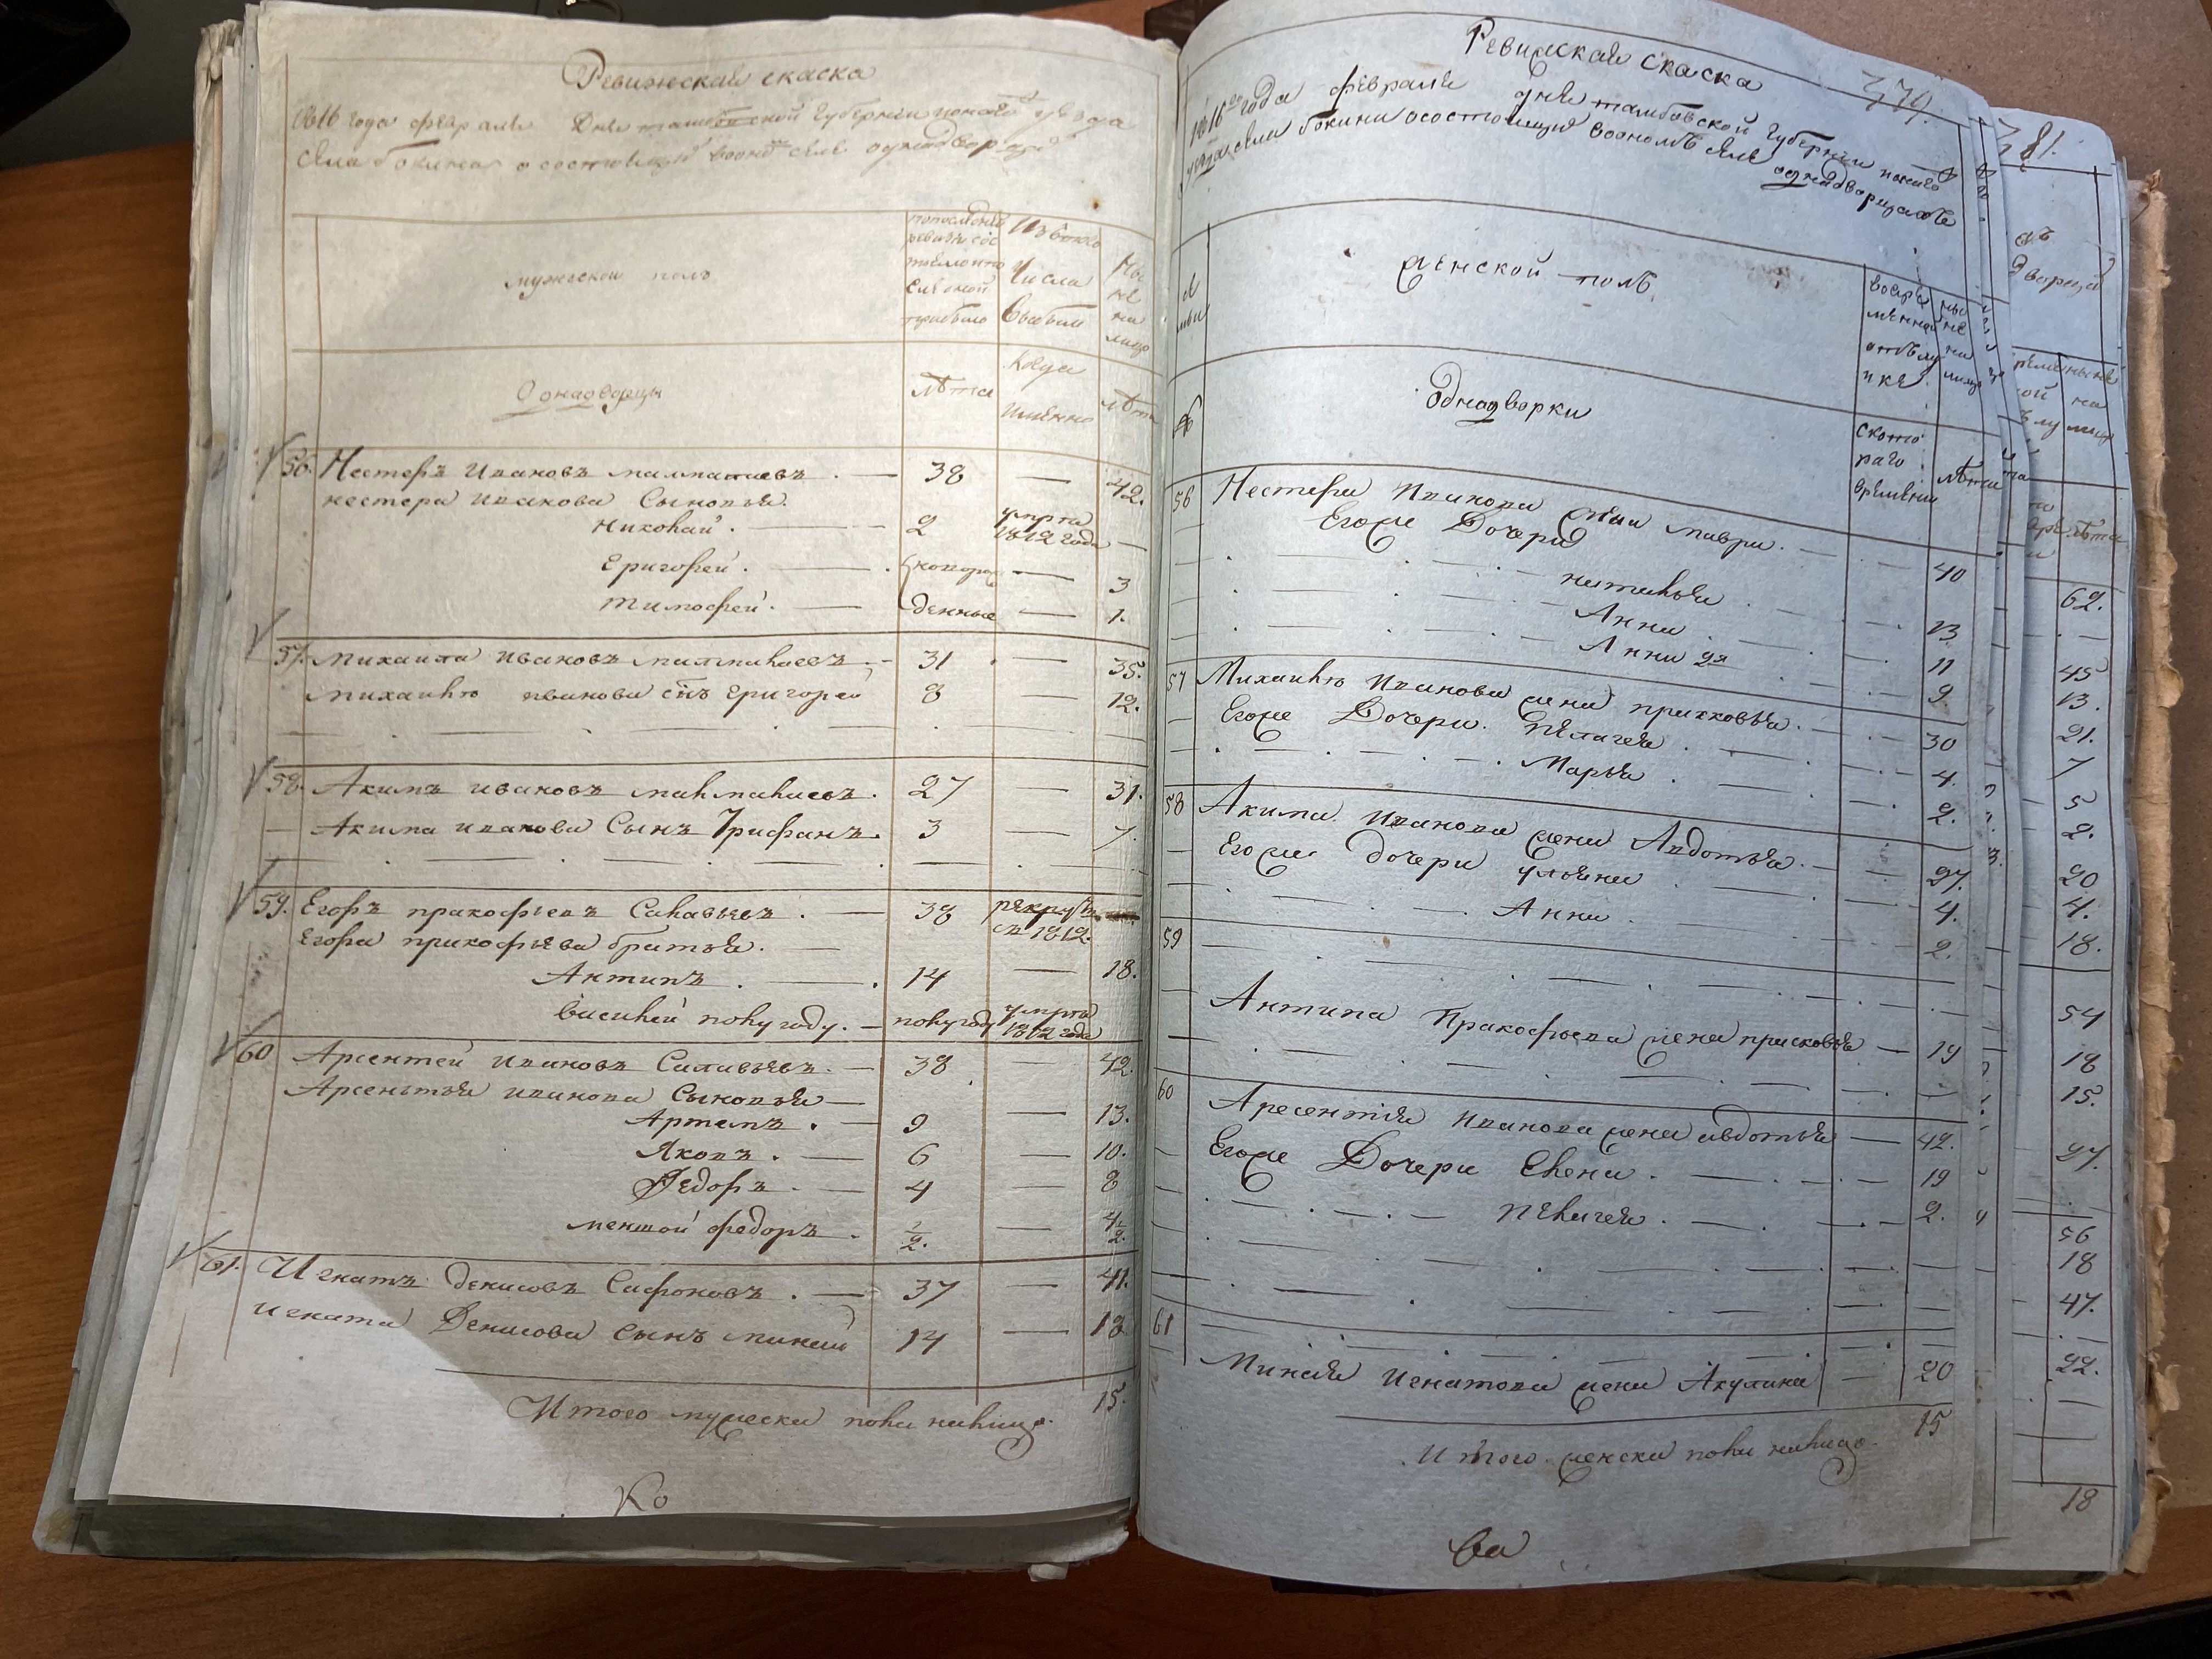 Ревижская скаска
1816 года февраля Дня тамбовской губернии
села бокина о состоящих одноворцах
мужеской полъ
Числа
лицо
Однодворцы
лѣта
когда
имянно
лѣта
56. Нестеръ Ивановъ — 38 — 42.
нестера иванова Сыновья
Николай. — 2 умрѣ 1812 года —
Григорей. — новорож — 3
тимофей. — денные — 1.
57. михаила ивановъ — 31 — 35.
михаила иванова снъ григорей 8 — 12.
58. Акимъ ивановъ малмалаевъ. 27 — 31.
Акима иванова Сынъ Трифанъ. 3 — 7.
59. Егоръ пракофьевъ Салавьевъ. — 38 рекрутъ въ 1812.
Егора пракофьева братья. —
Антипъ. — 14 — 18.
Василей полугоду. — полугоду умрѣ 1812 года
60 Арсентей ивановъ — 38 — 42.
Арсентья иванова Сыновья —
Артемъ. — 9 — 13.
Яковъ. — 6 — 10.
Федоръ. — 4 — 8
меншой федоръ. 1/2. — 4 1/2.
61. Игнатъ денисовъ Сафоновъ. — 37 — 41.
игната Денисова сынъ миней 14 — 18
Итого мужеска пола налицо. 15.
Ко
379.
Ревижская скаска
1816го года февраля дня тамбовской губернии
села бокина о состоящих однодворцахъ
женской полъ
Однодворки
ското
раго
времени
лѣта
56 Нестера Иванова жена мавра. — 40
Егоже Дочери
наталья. — 13
Анна. — 11
Анна 2я — 9.
57 Михаила Иванова жена прасковья. — 30
Егоже Дочери. Пелагея. — 4.
Марья. — 2.
58 Акима Иванова жена Авдотья. — 27.
Егоже дочери ульяна — 4.
Анна. — 2.
59
Антипа Пракофьева жена прасковья — 19
60 Арсентия Иванова жена авдотья — 42.
Егоже Дочери Елена. — 19
пелагея. — 2.
61
Минея Игнатова жена Акулина — 20
Итого женска пола налицо. 15
ва
381.
62.
45
13.
21.
7
5
2.
20
4.
18.
54
18
15.
27.
56
18
47.
22.
18